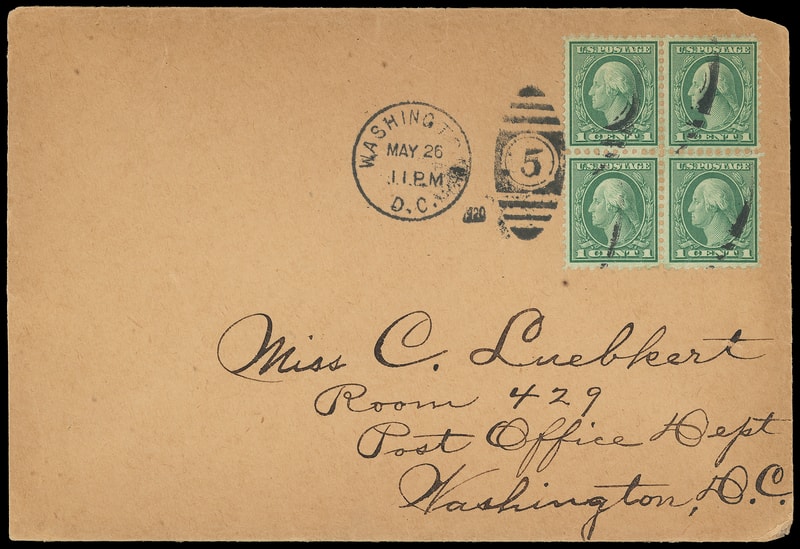 U.S. POSTAGE U.S. POSTAGE
1 CENT 1 1 CENT 1
U.S. POSTAGE U.S. POSTAGE
1 CENT 1 1 CENT 1
WASHINGTON
MAY 26
11 PM
D.C.
1920
5
Miss C. Luebkert
Room 429
Post Office Dept
Washington, D.C.